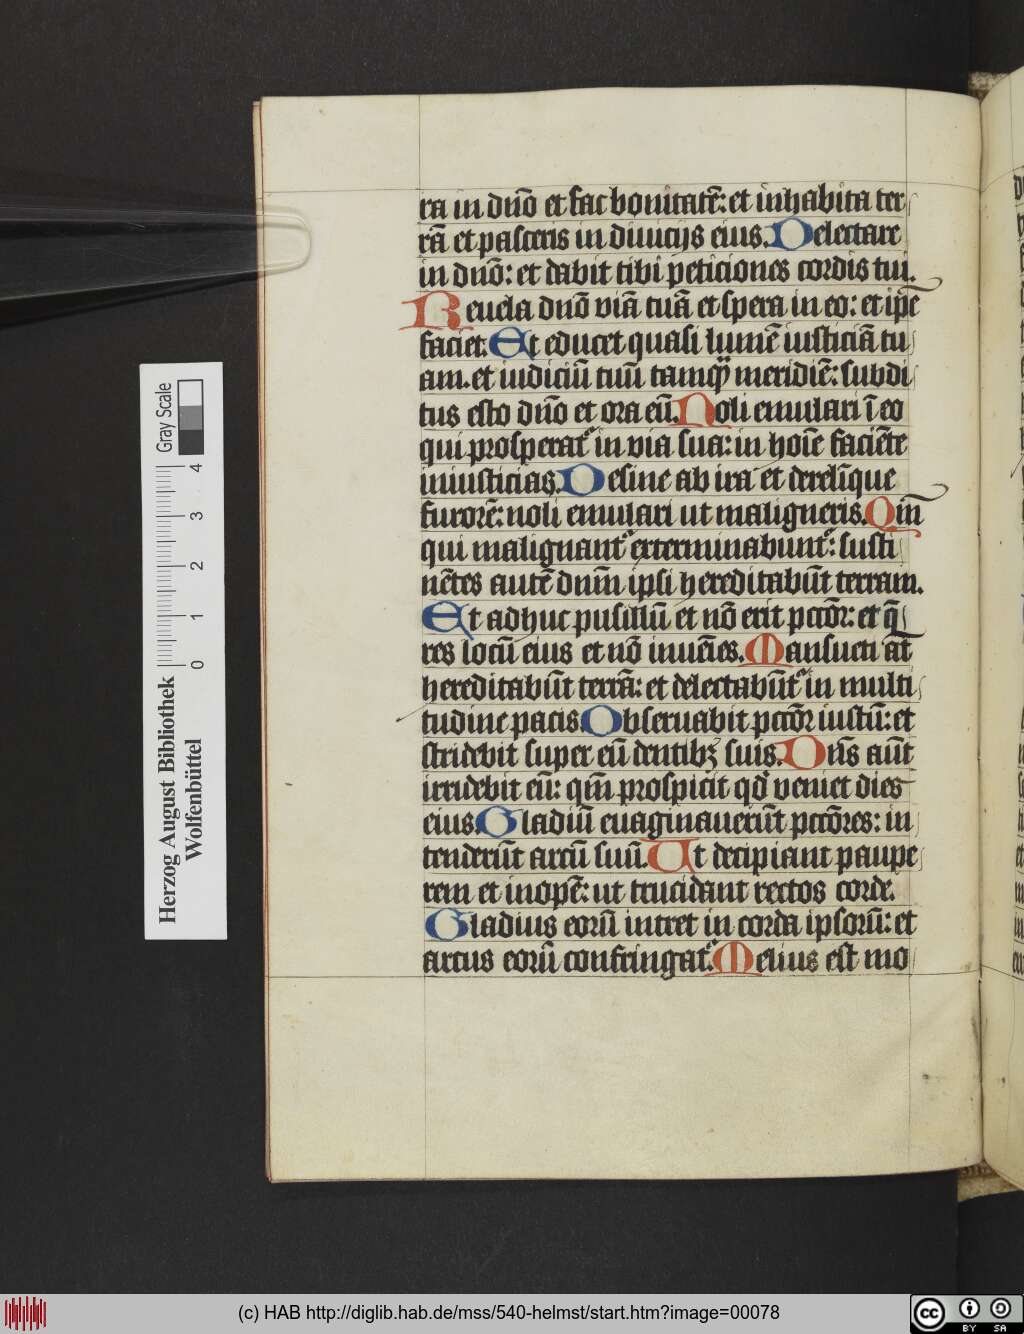 ra in dn̄o et fac bonitatē: et inhabita ter
rā et pasceris in diuicijs eius. Delectare
in dn̄o: et dabit tibi peticiones cordis tui.
Reuela dn̄o viā tuā et spera in eo: et ip̄e
faciet. Et educet quasi lumē iusticiā tu
am. et iudiciū tuū tamqͣ meridiē: subdi
tus esto dn̄o et ora eū. Noli emulari ī eo
qui prosperat᷑ in via sua: in hoīe faciēte
iniusticias. Desine ab ira et derelīque
furorē: noli emulari ut maligneris. Qm̄
qui malignant᷑ exterminabunt᷑: susti
nētes autē dnm̄ ipsi hereditabūt terram.
Et adhuc pusillū et nō erit pctōr: et q̄
res locū eius et nō inuēies. Mansueti at̄
hereditabūt terrā: et delectabūt᷑ in multi
tudine pacis. Obseruabit pctōr iustū: et
stridebit super eū dentibꝫ suis. Dn̄s aūt
irridebit eū: qm̄ prospicit qd̓ veniet dies
eius. Gladiū euaginauerūt pctōres: in
tenderūt arcū suū. Ut decipiant paupe
rem et inopē: ut trucidant rectos corde.
Gladius eorū intret in corda ipsorū: et
arcus eorū confringat᷑. Melius est mo
Herzog August Bibliothek
Wolfenbüttel
0 1 2 3 4
Gray Scale
(c) HAB http://diglib.hab.de/mss/540-helmst/start.htm?image=00078
cc BY SA